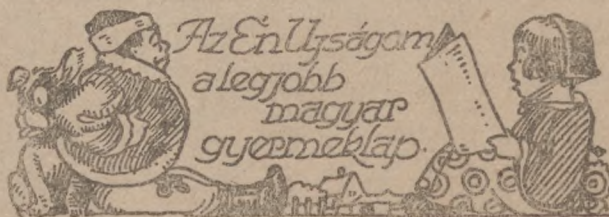 Az Én Ujságom
a legjobb
magyar
gyermeklap.